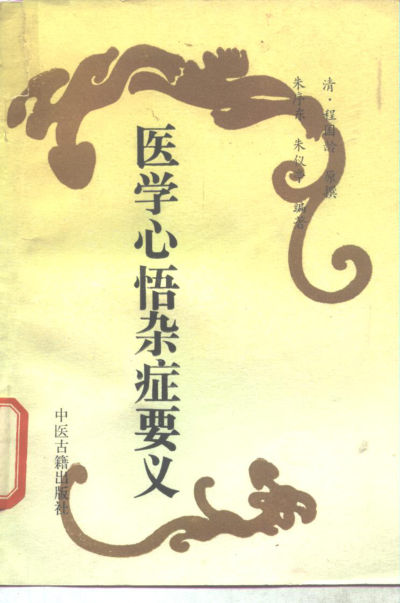 清·程国龄 原撰
朱序东 朱仪
编著
医学心悟杂症要义
中医古籍出版社